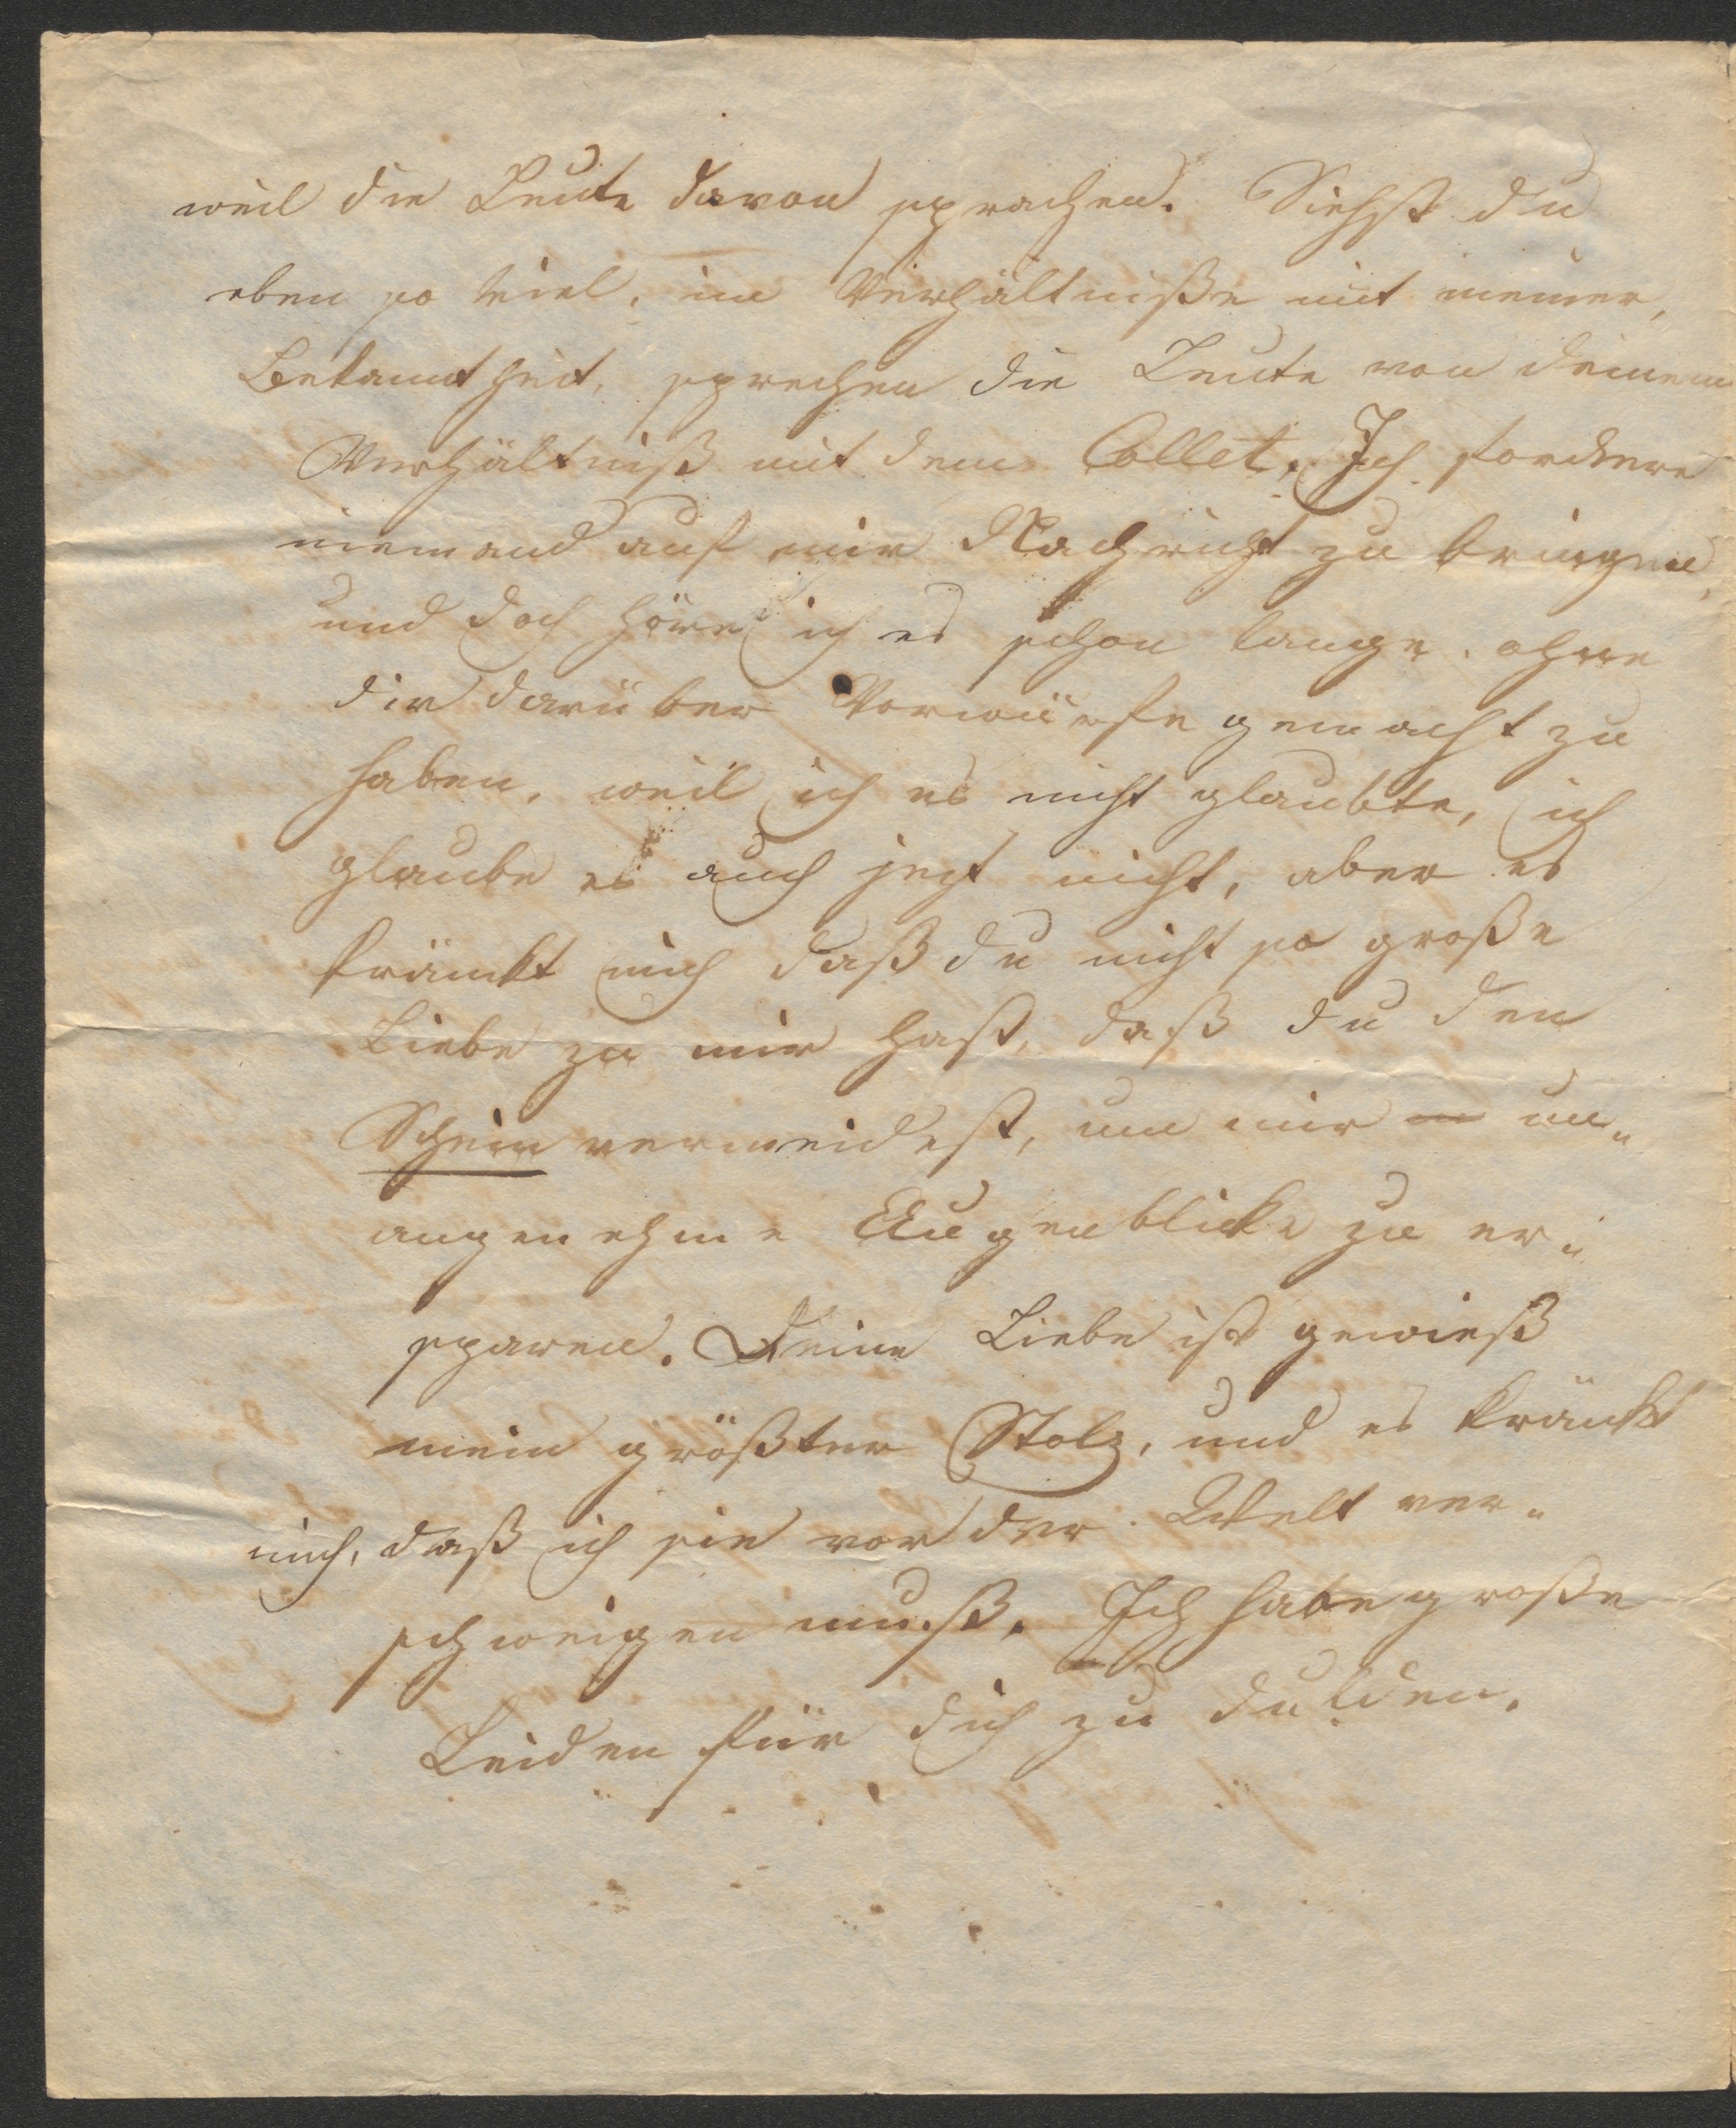 weil die Leute davon sprachen. Siehst du
eben so viel, im Verhältniße mit meiner,
Bekamtheit, sprechen die Leute von deinem
Verhältniß mit dem Collet. Ich fordere
niemand auf mir Nachricht zu bringen,
und doch höre ich es schon lange, ohne
dir darüber Vorwürfe gemacht zu
haben, weil ich es nicht glaubte, ich
glaube es auch jezt nicht, aber es
kränkt mich daß du nicht so große
Liebe zu mir hast, daß du den
Schein vermeidest, um mir un„
angenehme Augenblicke zu er„
sparen. Deine Liebe ist gewieß
mein größter Stolz, und es kränkt
mich, daß ich sie vor der Welt ver„
schweigen muß. Ich habe große
Leiden für dich zu dulden.